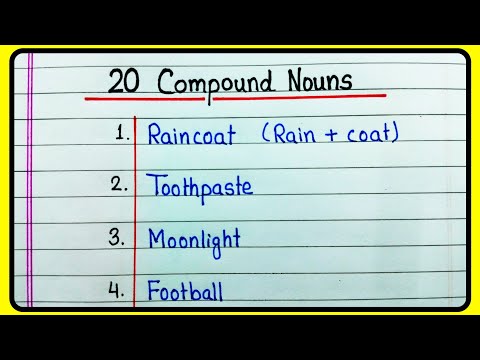 20 Compound Nouns
1. Raincoat (Rain + coat)
2. Toothpaste
3. Moonlight
4. Football